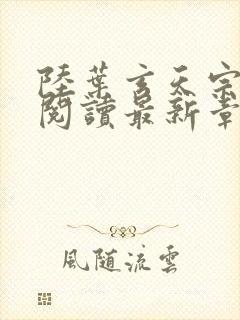 陸葉玄天宗
閱讀最新章
風随流雲